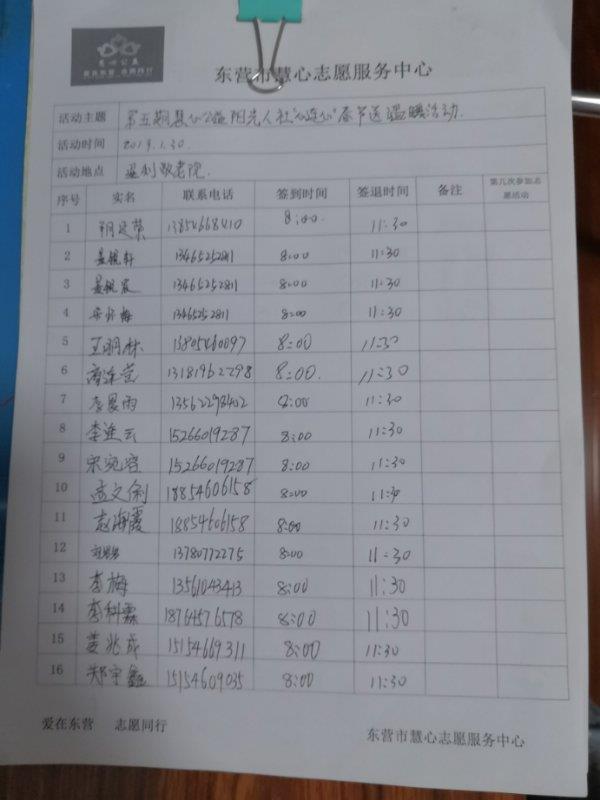 慧心公益
爱在东营 志愿同行
东营市慧心志愿服务中心
活动主题 第五期慧心公益阳光人社"心连心"春节送温暖活动.
活动时间 2019.1.30.
活动地点 敬老院.
序号 实名 联系电话 签到时间 签退时间 备注 第几次参加志愿活动
1 13854668410 8:00. 11:30
2 13465252811 8:00 11:30
3 13465252811 8:00 11:30
4 13465252811 8:00 11:30
5 王明林 13805460097 8:00 11:30
6 13181962298 8:00. 11:30
7 李晨雨 13562298402 8:00 11:30
8 李连云 15266019287 8:00 11:30
9 宋宛容 15266019287 8:00 11:30
10 孟文俐 18854606158 8:00 11:30
11 赵海霞 18854606158 8:00 11:30
12 13780772275 8:00 11:30
13 李梅 13561043413 8:00 11:30
14 李科霖 18764576578 8:00 11:30
15 姜兆成 15154669311 8:00 11:30
16 郑宇鑫 15154609035 8:00 11:30
爱在东营 志愿同行 东营市慧心志愿服务中心